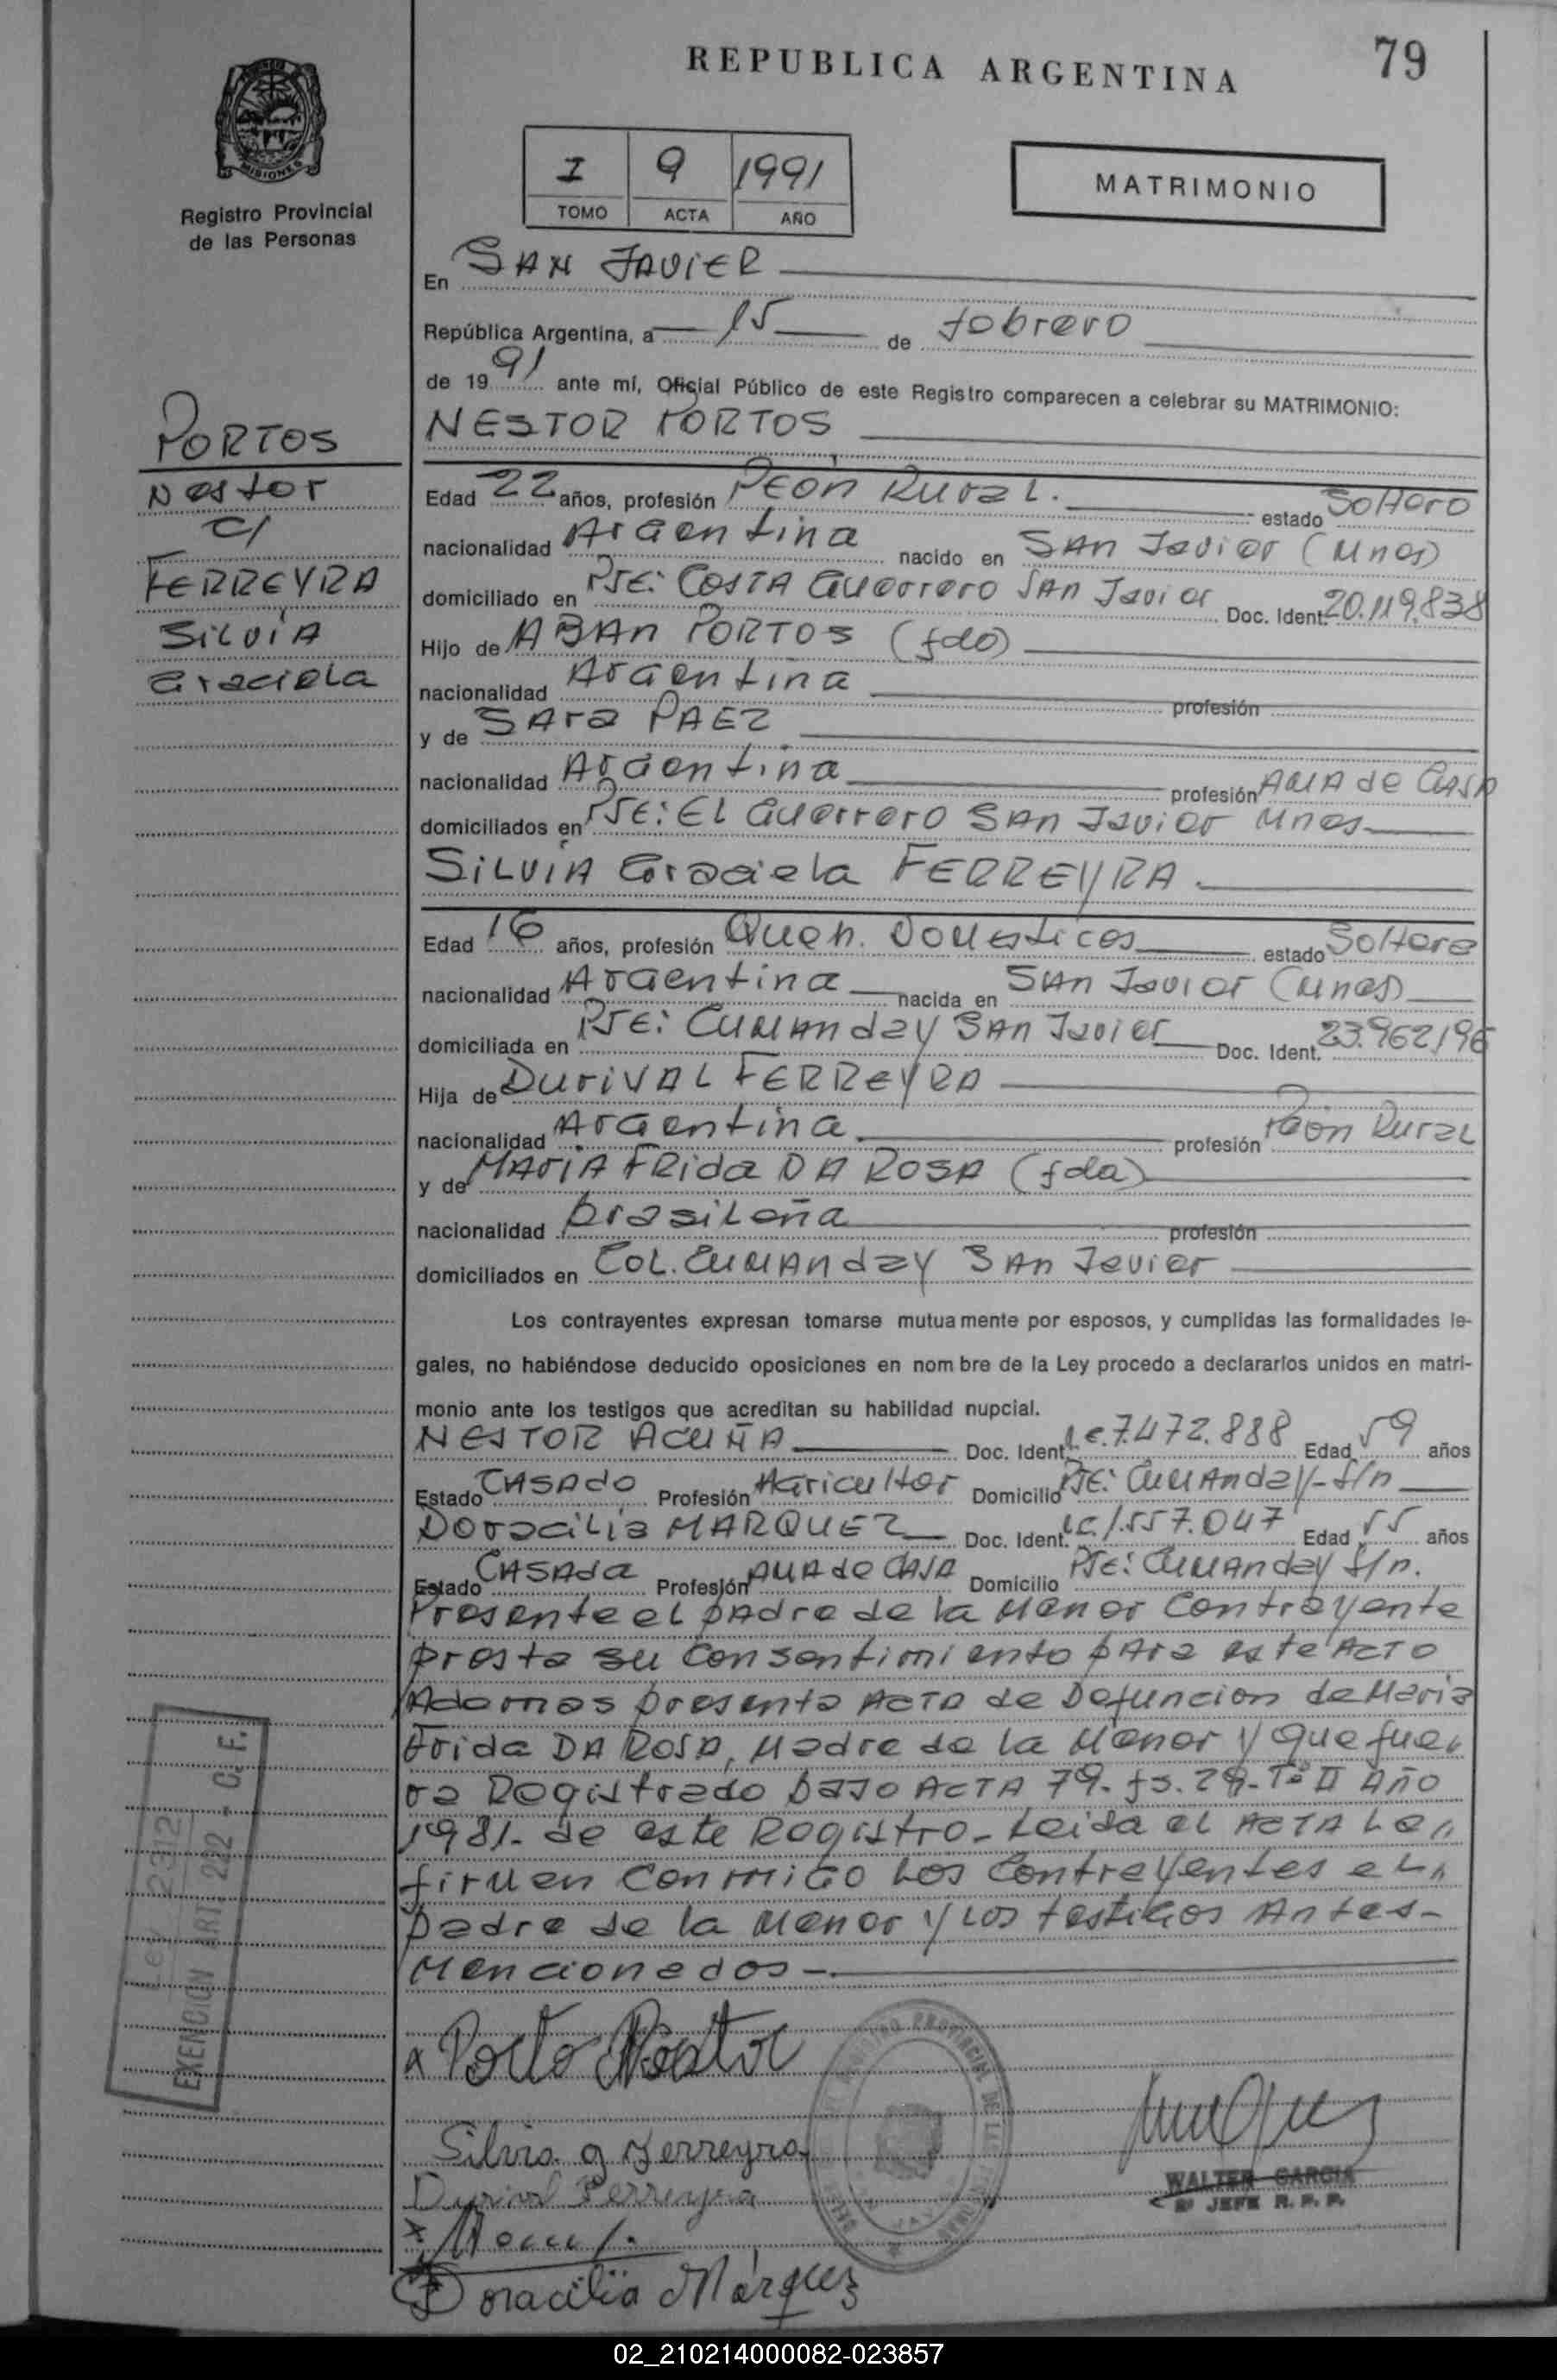 REPUBLICA ARGENTINA
79
MISIONES
Registro Provincial
de las Personas
I 9 1991
TOMO ACTA AÑO
MATRIMONIO
En SAN JAVIER
República Argentina, a 15 de febrero
de 1991 ante mí, Oficial Público de este Registro comparecen a celebrar su MATRIMONIO:
NESTOR PORTOS
PORTOS
Nestor
c/
FERREYRA
SiLViA
Graciela
Edad 22 años, profesión Peón Rural. estado Soltero
nacionalidad Argentina nacido en SAn Javier (Mnes)
domiciliado en Pje: COSTA Guerrero SAn Javier Doc. Ident. 20.119.838
Hijo de ABAn PORTOS (fdo)
nacionalidad Argentina profesión
y de SAra PAEZ
nacionalidad Argentina profesión AMA de CASA
domiciliados en Pje: EL Guerrero SAn Javier Mnes
SiLViA Graciela FERREYRA.
Edad 16 años, profesión Queh. Domesticos estado Soltera
nacionalidad Argentina nacida en SAn Javier (Mnes)
domiciliada en Pje: CuMAnday SAn Javier Doc. Ident. 23.962196
Hija de DuriVAL FERReyRA
nacionalidad Argentina profesión Peón Rural
y de MAriA FRida DA ROSA (fda)
nacionalidad brasileña profesión
domiciliados en COL. CuMAnday SAn Javier
Los contrayentes expresan tomarse mutuamente por esposos, y cumplidas las formalidades le-
gales, no habiéndose deducido oposiciones en nombre de la Ley procedo a declararlos unidos en matri-
monio ante los testigos que acreditan su habilidad nupcial.
NESTOR ACUÑA Doc. Ident. L.e. 7.472.888 Edad 59 años
Estado CASADO Profesión Agricultor Domicilio Pje: CuMAnday-s/n
Doracilia MARQUEZ Doc. Ident. Lc. 1.557.047 Edad 55 años
Estado CASAda Profesión AMA de CASA Domicilio Pje: CuMAnday s/n.
Presente el padre de la Menor Contrayente
presta su Consentimiento pAra este ACTO
Ademas presenta ACTA de Defuncion de Maria
Frida DA ROSA, Madre de la Menor y que fue"
ra Registrado bajo ACTA 79- fs. 29- Tº II Año
1981- de este Registro- Leida el ACTA La"
firman Conmigo Los Contrayentes el"
padre de la Menor y Los testigos Antes-
Mencionados-
Ley 2312
EXENCION ART. 222 - C.F.
x Porto Nestor
Silvia g Ferreyra
Durival Ferreyra
WALTER GARCIA
2º JEFE R. P. P.
Doracilia Márquez
02_210214000082-023857